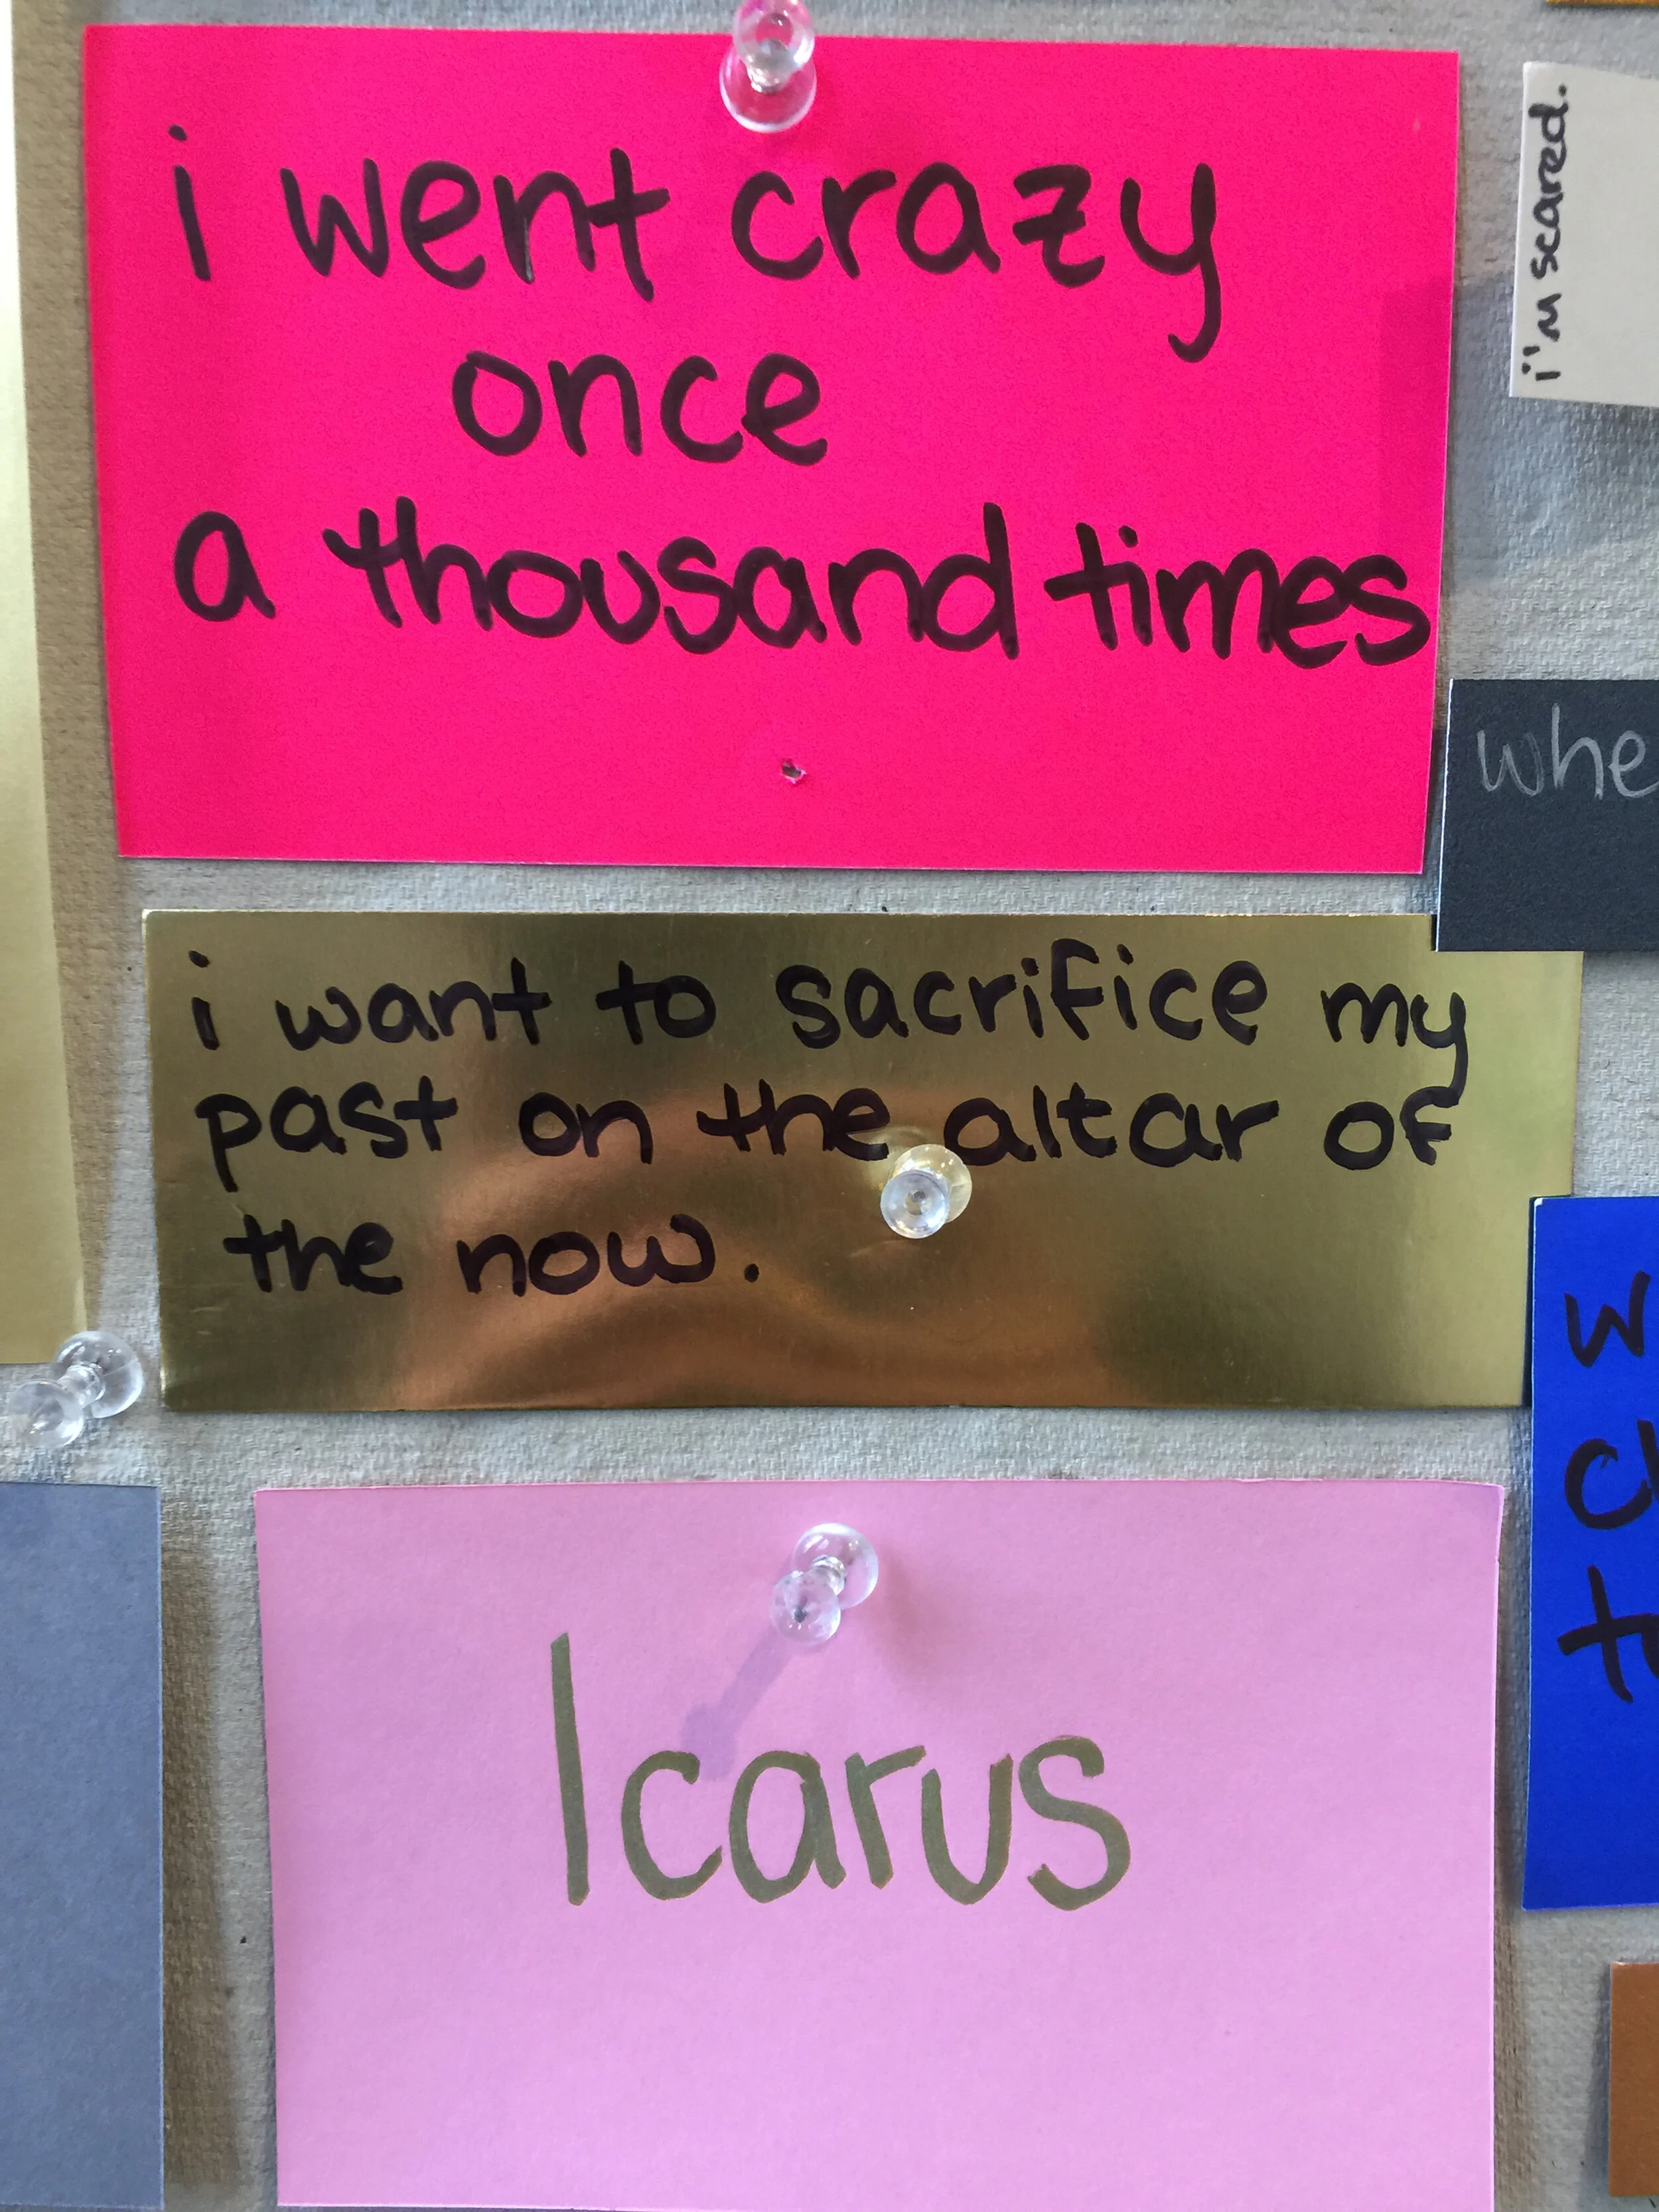 i went crazy
once
a thousand times
i'm scared.
whe
i want to sacrifice my
past on the altar of
the now.
Icarus